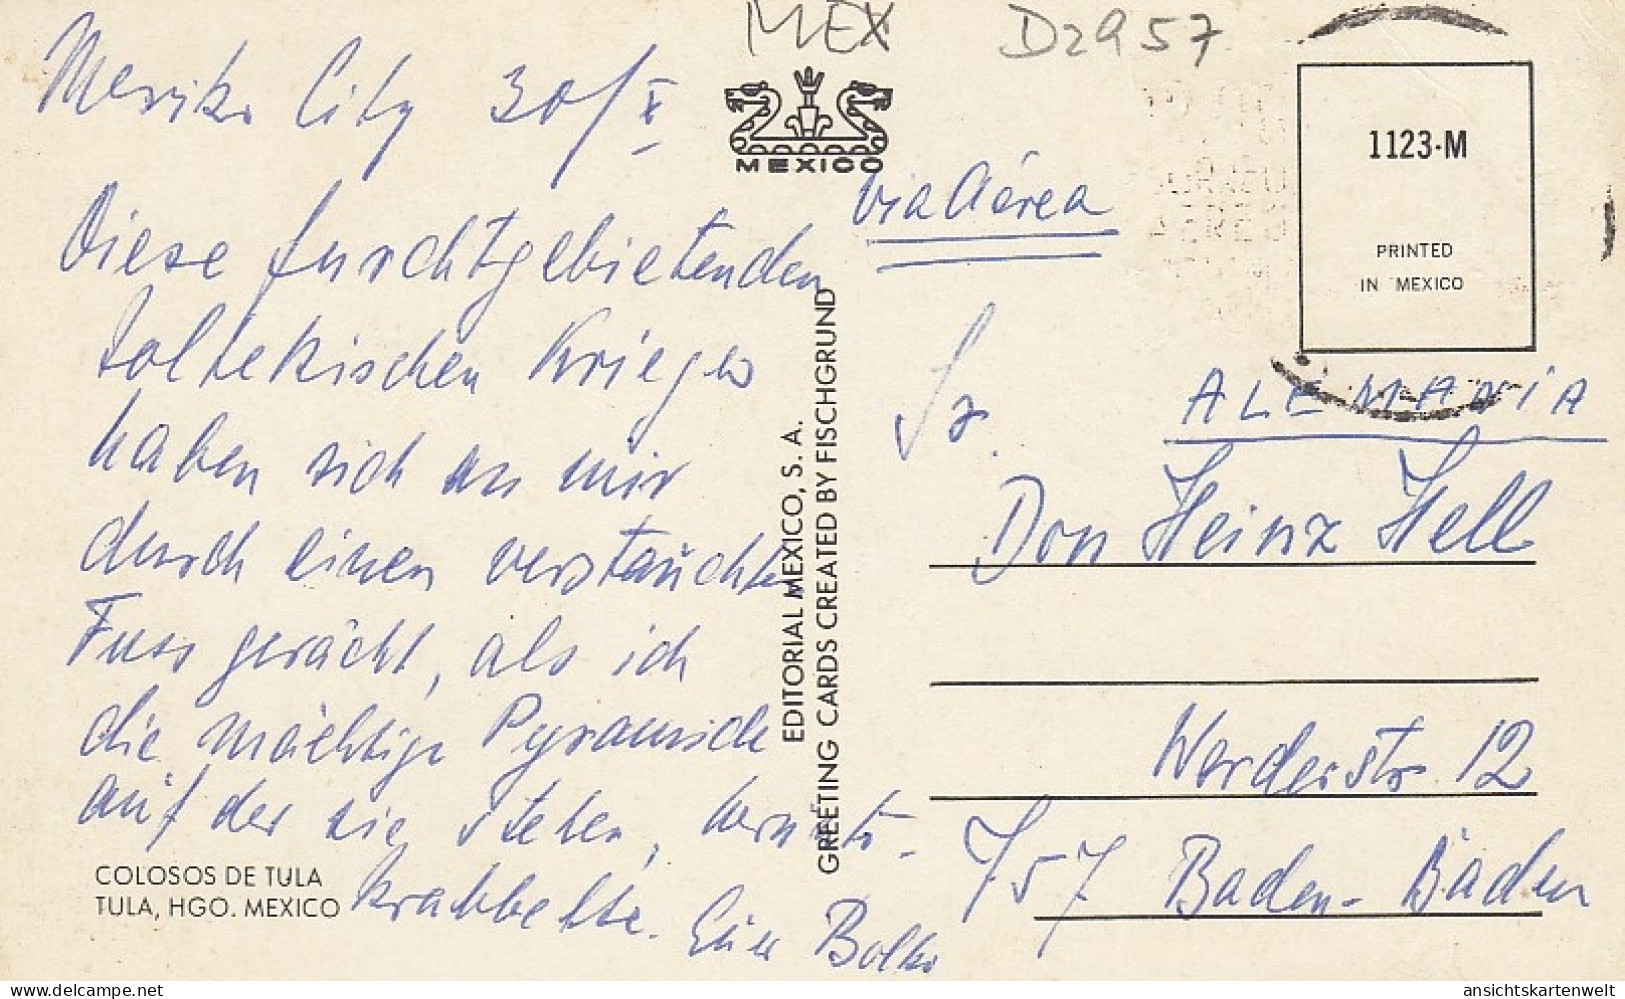 MEX
D2957
Mexiko City 30/X
MEXICO
1123-M
PRINTED
IN MEXICO
Via Aérea
Diese furchtgebietenden
toltekischen Krieger
haben sich an mir
durch einen verstauchten
Fuss gerächt, als ich
die mächtige Pyramide
auf der sie stehen, herunter-
krabbelte.
Euer Bolko
COLOSOS DE TULA
TULA, HGO. MEXICO
EDITORIAL MEXICO, S. A.
GREETING CARDS CREATED BY FISCHGRUND
ALEMANIA
Sr.
Don Heinz Hell
Werderstr 12
757 Baden-Baden
ansichtskartenwelt